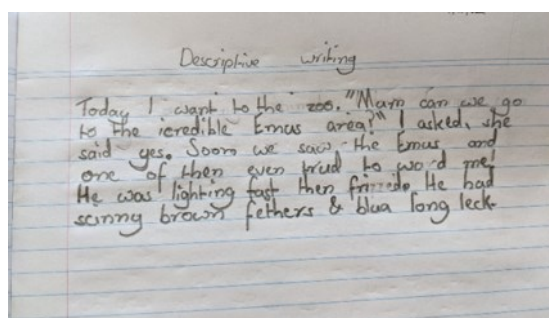 Descriptive writing
Today I want to the zoo. "Mam can we go
to the icredible Emus area?" I asked, she
said yes. Soon we saw the Emus and
one of then even trud to word me!
He was lighting fast then frizzedo. He had
scinny brown fethers & blua long leck.